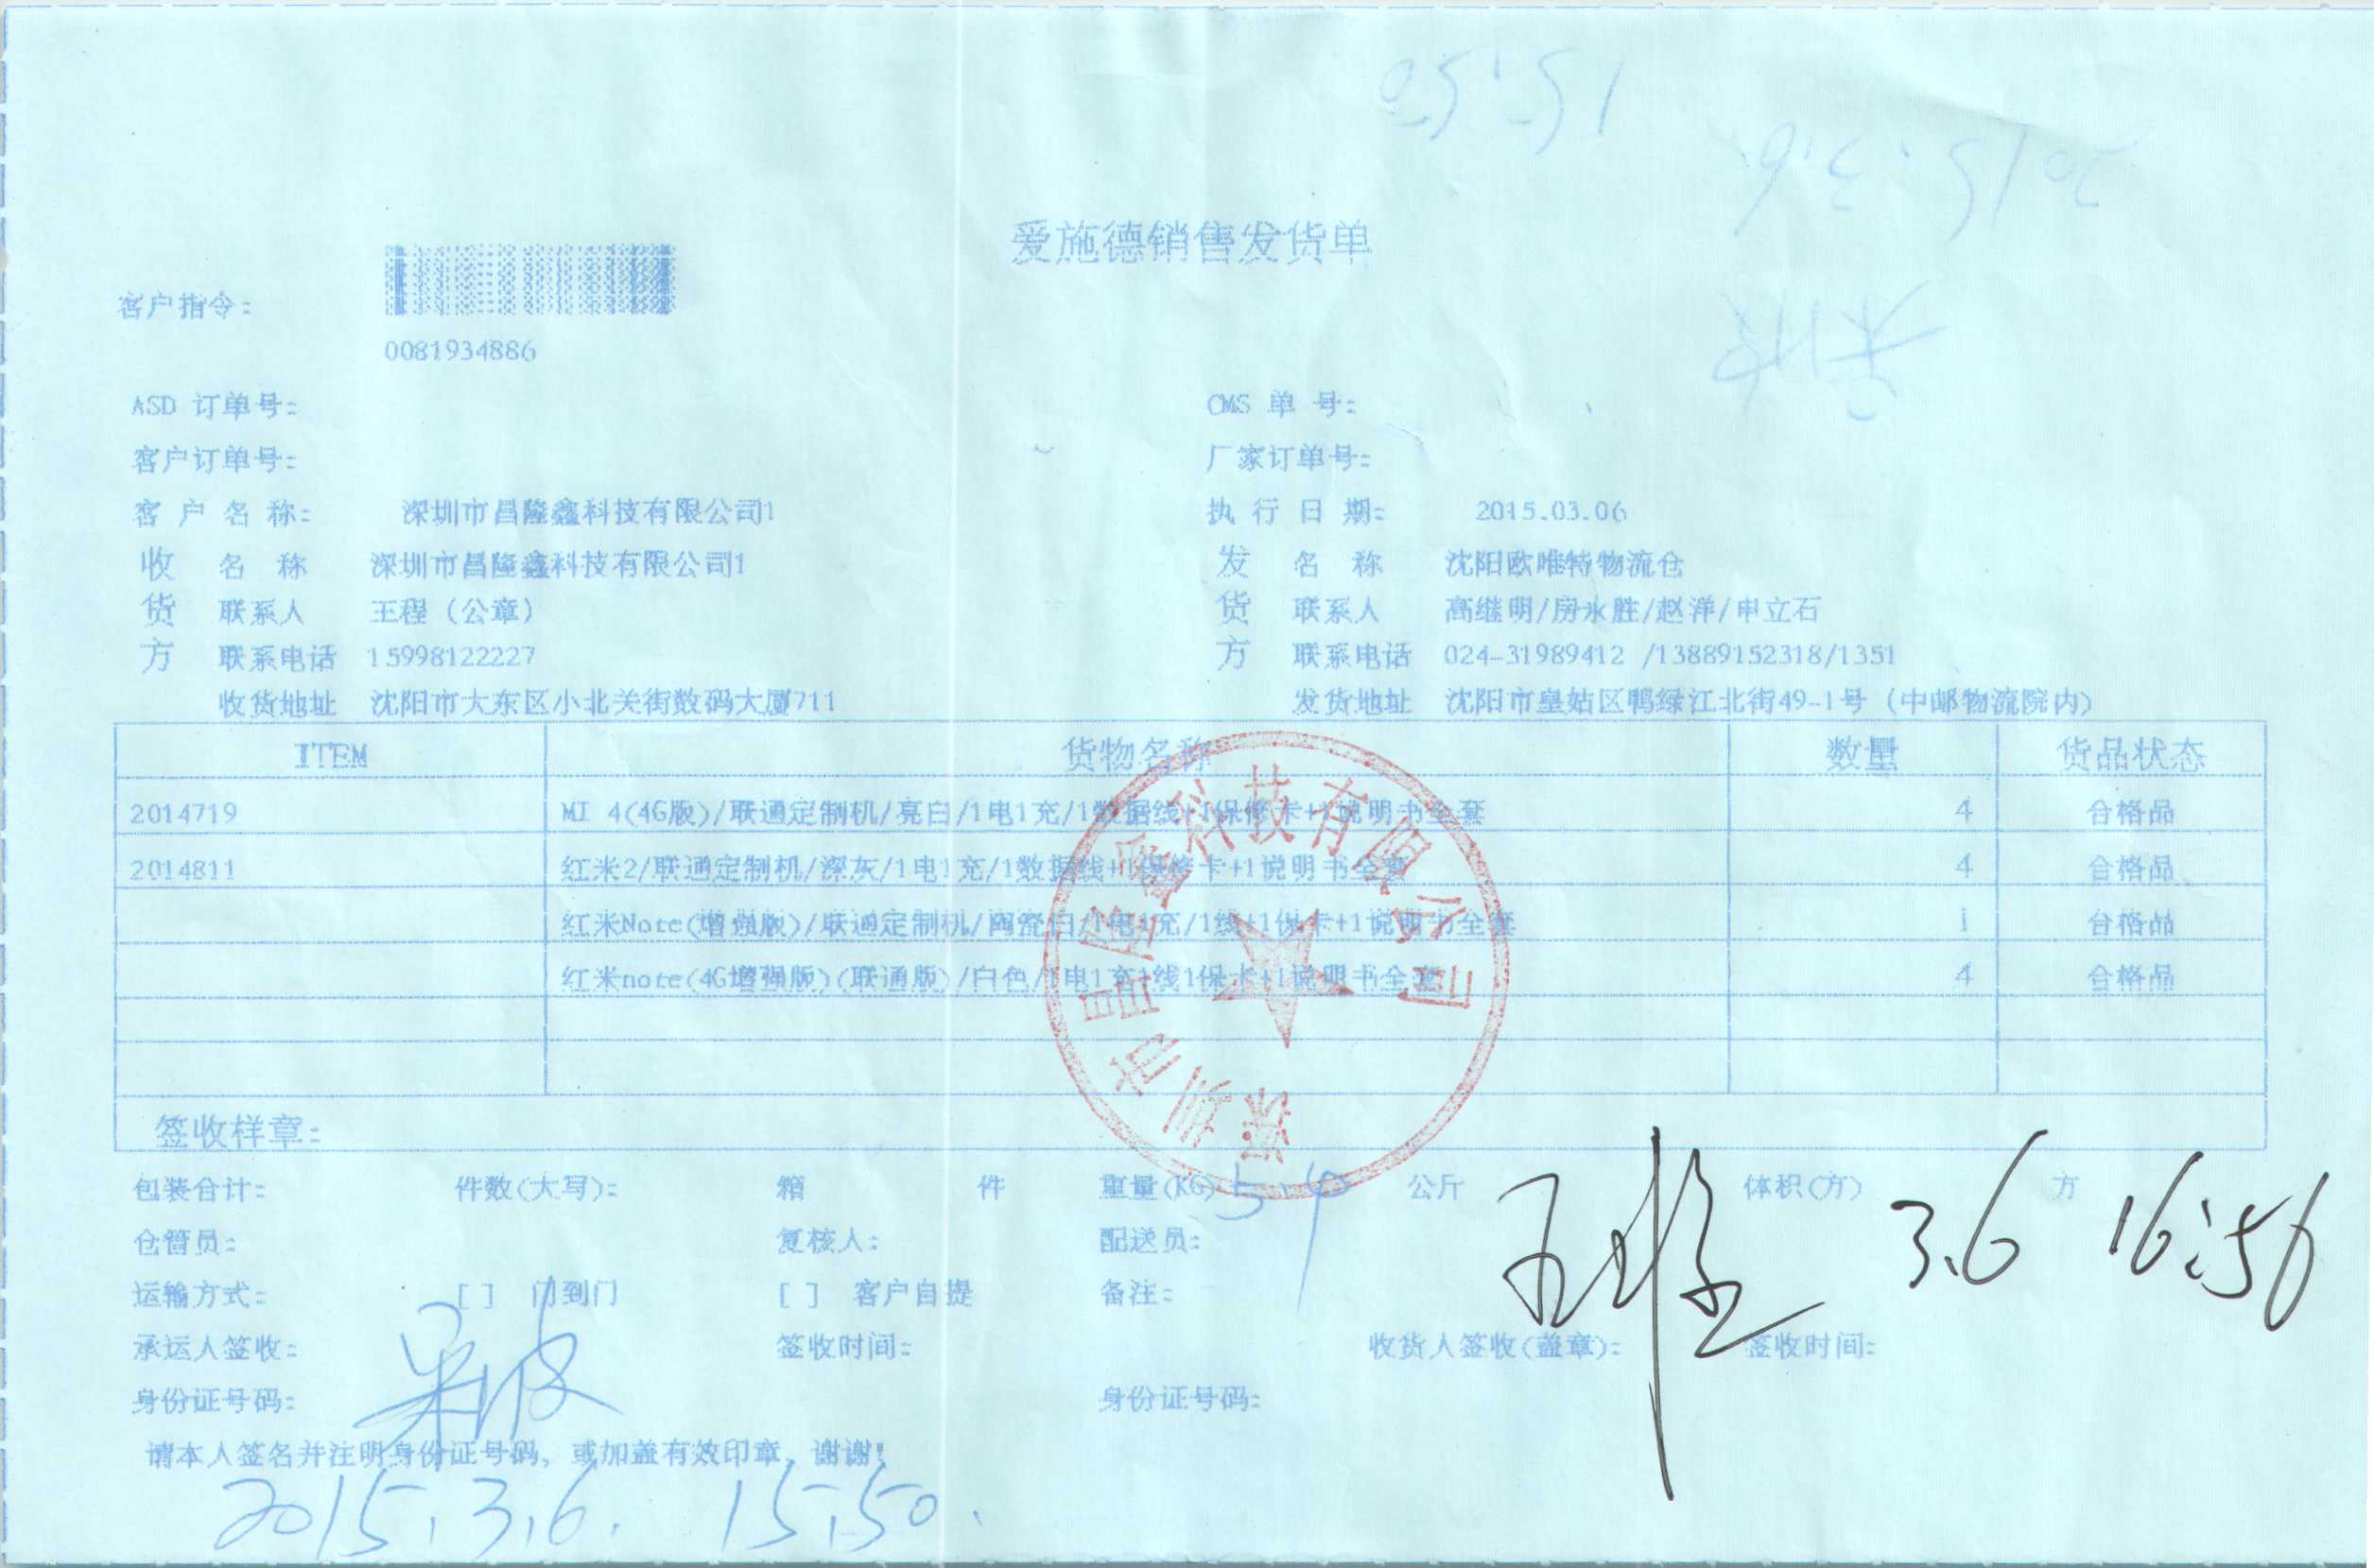 爱施德销售发货单
客户指令:
0081934886
ASD 订单号: CMS 单 号:
客户订单号: 厂家订单号:
客 户 名 称: 深圳市昌隆鑫科技有限公司1 执 行 日 期: 2015.03.06
收 名 称 深圳市昌隆鑫科技有限公司1 发 名 称 沈阳欧唯特物流仓
货 联系人 王程（公章） 货 联系人 高继明/房永胜/赵洋/申立石
方 联系电话 15998122227 方 联系电话 024-31989412 /13889152318/1351
收货地址 沈阳市大东区小北关街数码大厦711 发货地址 沈阳市皇姑区鸭绿江北街49-1号（中邮物流院内）
ITEM 货物名称 数量 货品状态
2014719 MI 4(4G版)/联通定制机/亮白/1电1充/1数据线+1保修卡+1说明书全套 4 合格品
2014811 红米2/联通定制机/深灰/1电1充/1数据线+1保修卡+1说明书全套 4 合格品
红米Note(增强版)/联通定制机/陶瓷白/1电1充/1线+1保卡+1说明书全套 1 合格品
红米note(4G增强版)(联通版)/白色/1电1充1线1保卡+1说明书全套 4 合格品
深圳市昌隆鑫科技有限公司
签收样章:
包装合计: 件数(大写): 箱 件 重量(KG) 公斤 体积(方) 方
仓管员: 复核人: 配送员:
王程 3.6 16:56
运输方式: [ ] 门到门 [ ] 客户自提 备注:
承运人签收: 签收时间: 收货人签收(盖章): 签收时间:
身份证号码: 身份证号码:
请本人签名并注明身份证号码，或加盖有效印章，谢谢!
2015.3.6. 15:50.